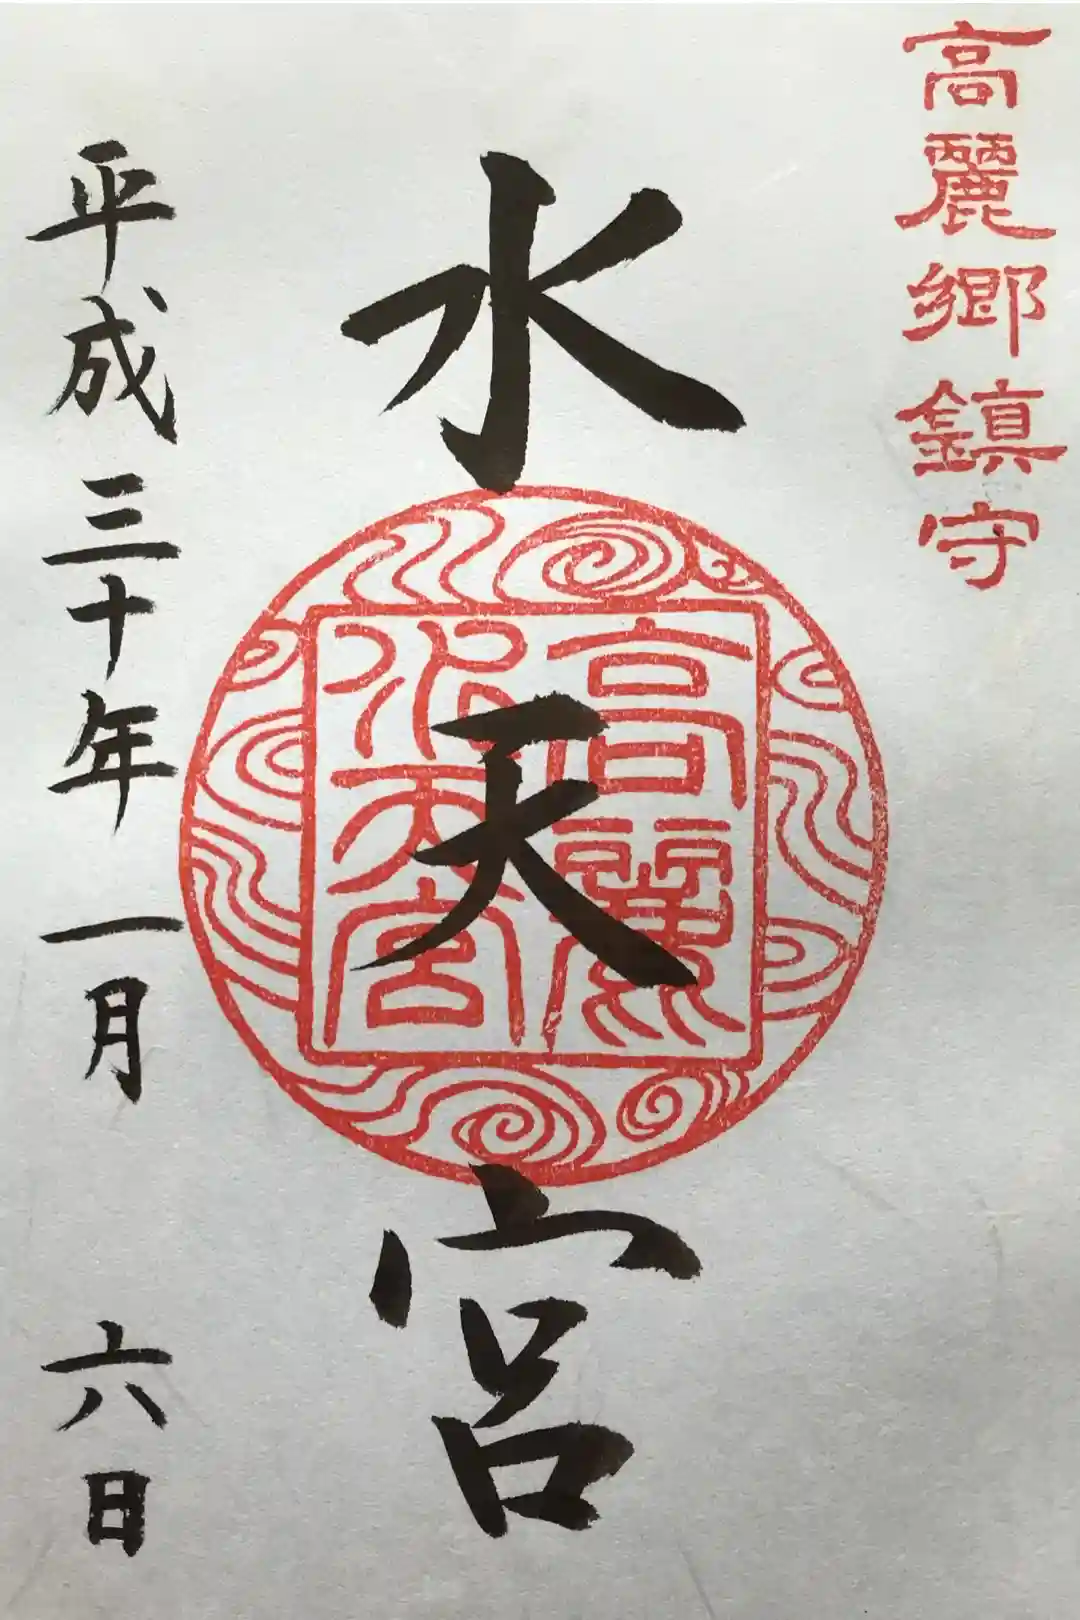 高麗郷鎮守
水天宮
高麗
水天宮
平成三十年一月六日